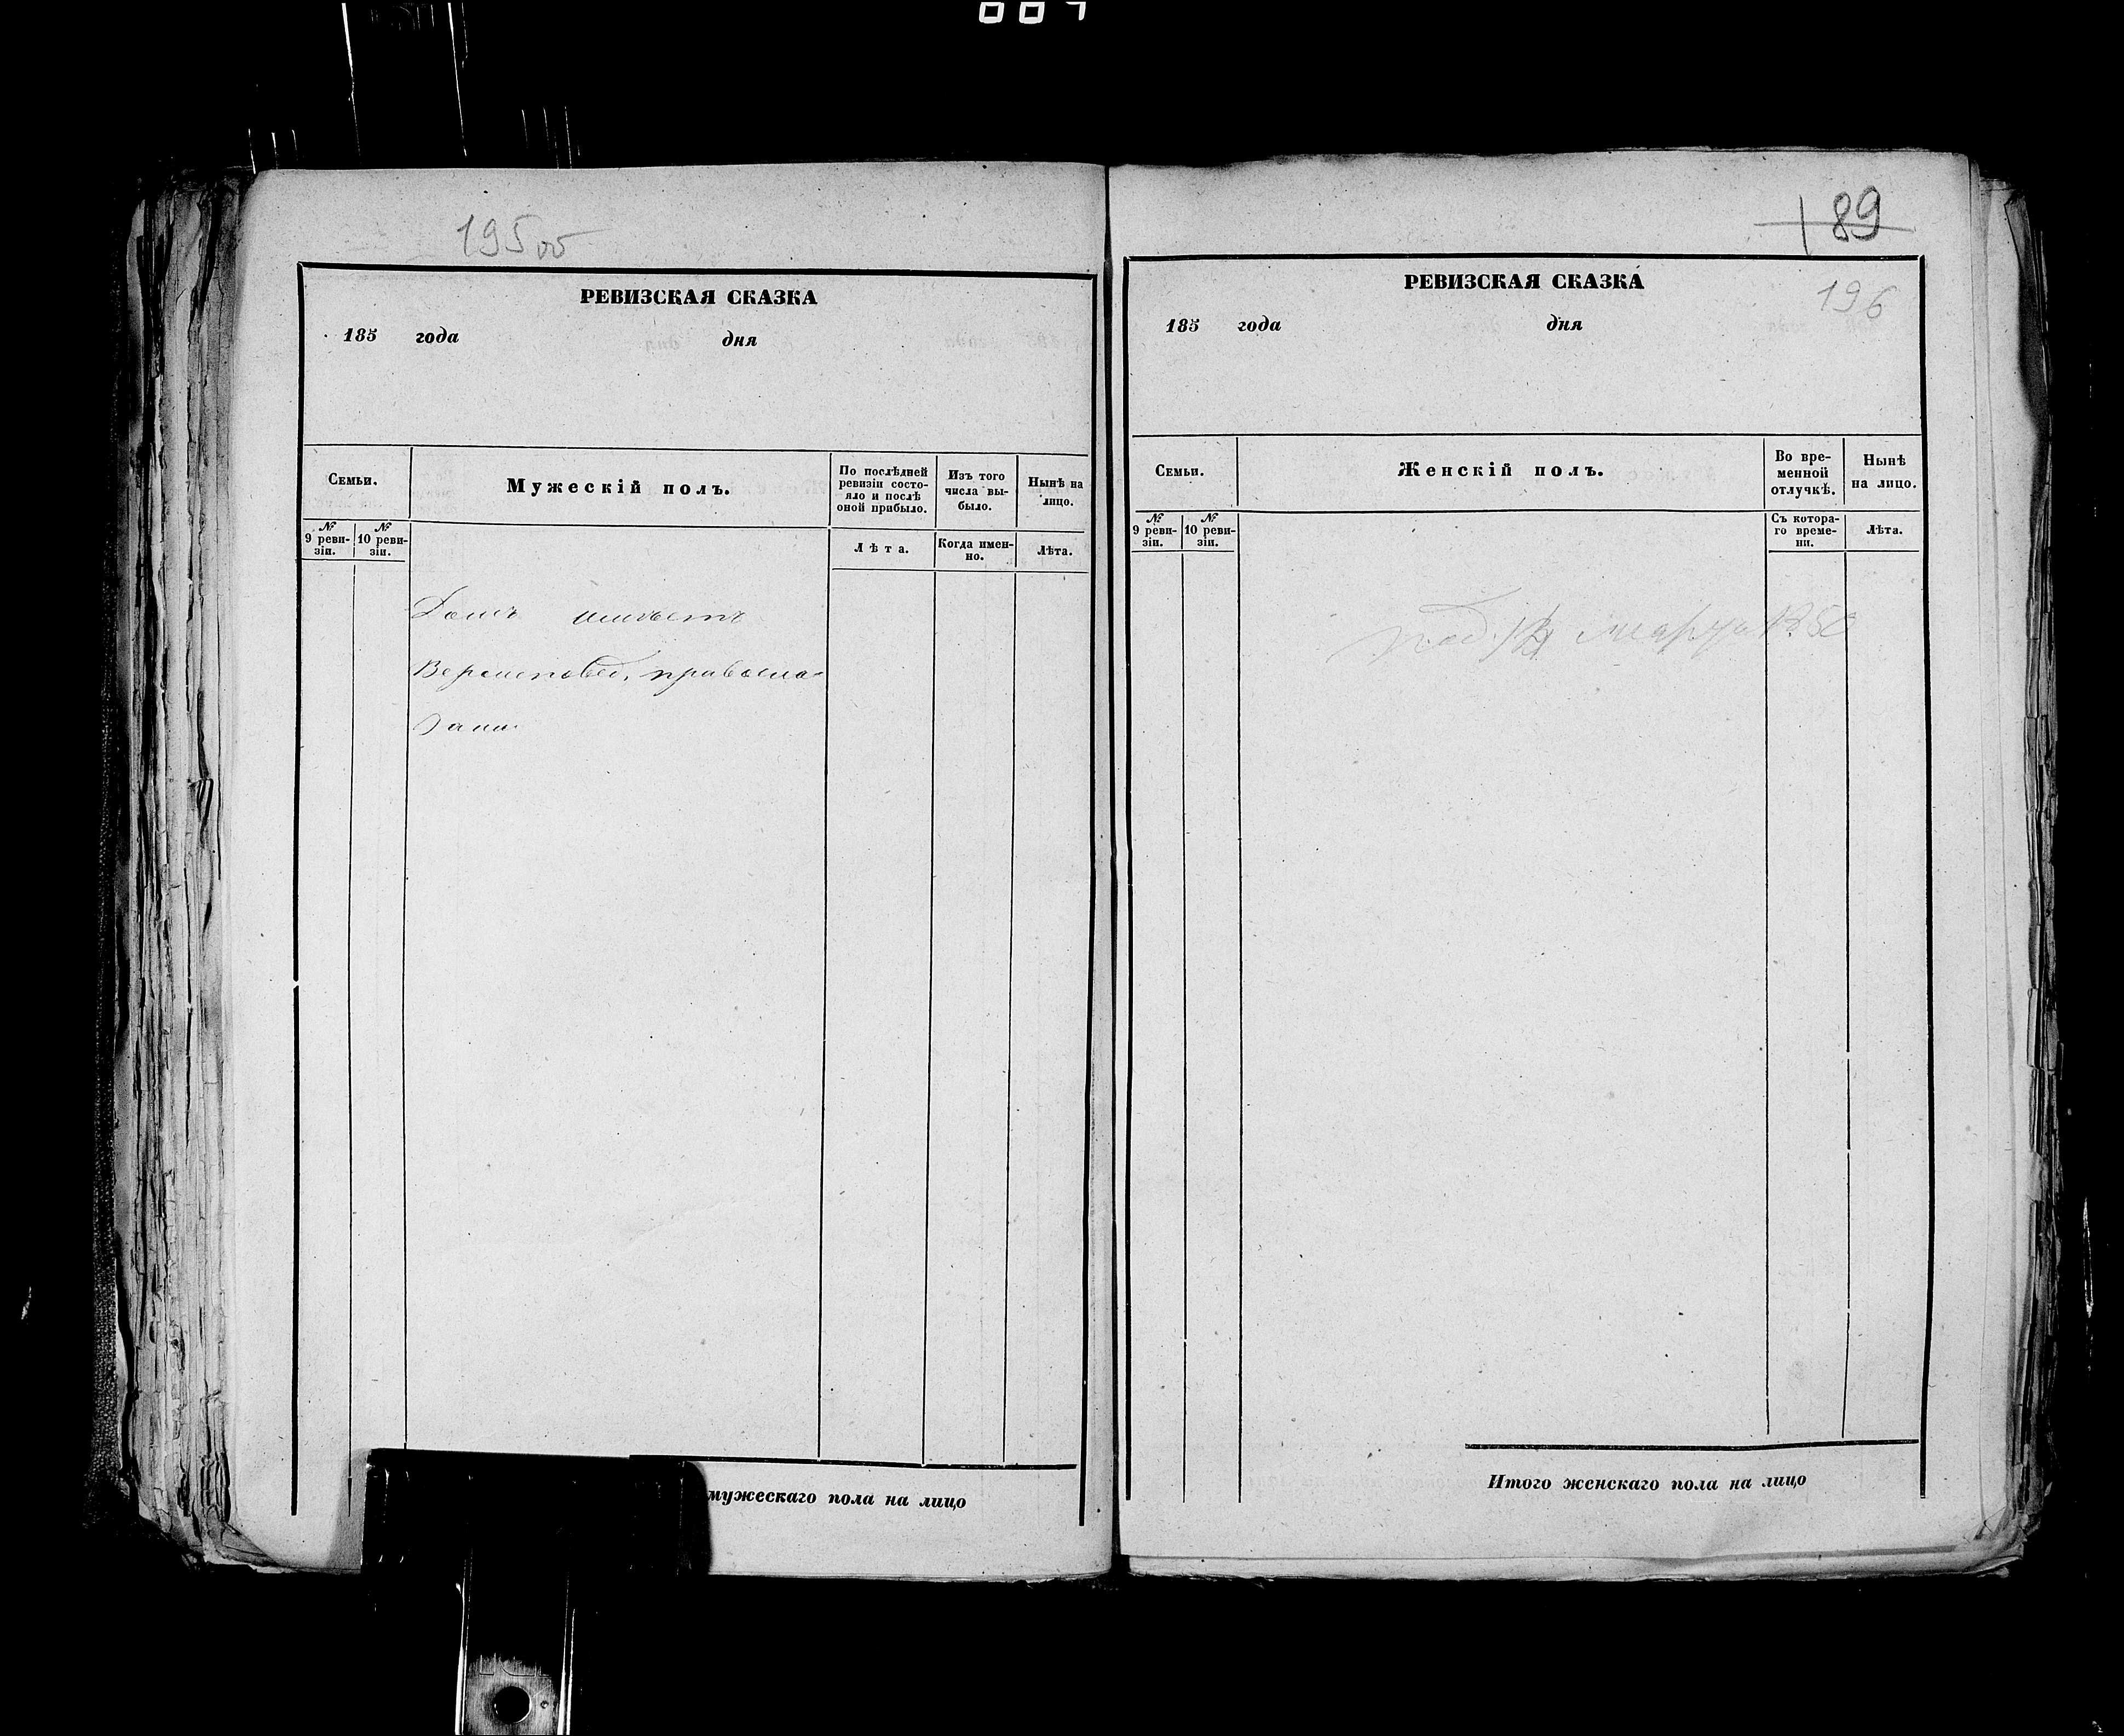 195 об
РЕВИЗСКАЯ СКАЗКА
185 года дня
Семьи.
Мужескій полъ.
По послѣдней
ревизіи состо-
яло и послѣ
оной прибыло.
Изъ того
числа вы-
было.
Нынѣ на
лицо.
№
9 реви-
зіи.
№
10 реви-
зіи.
Лѣта.
Когда имен-
но.
Лѣта.
Домъ имѣетъ
Вероисповед. правосла-
мужескаго пола на лицо
189
196
РЕВИЗСКАЯ СКАЗКА
185 года дня
Семьи.
Женскій полъ.
Во вре-
менной
отлучкѣ.
Нынѣ
на лицо.
№
9 реви-
зіи.
№
10 реви-
зіи.
Съ котора-
го време-
ни.
Лѣта.
марта 1850
Итого женскаго пола на лицо